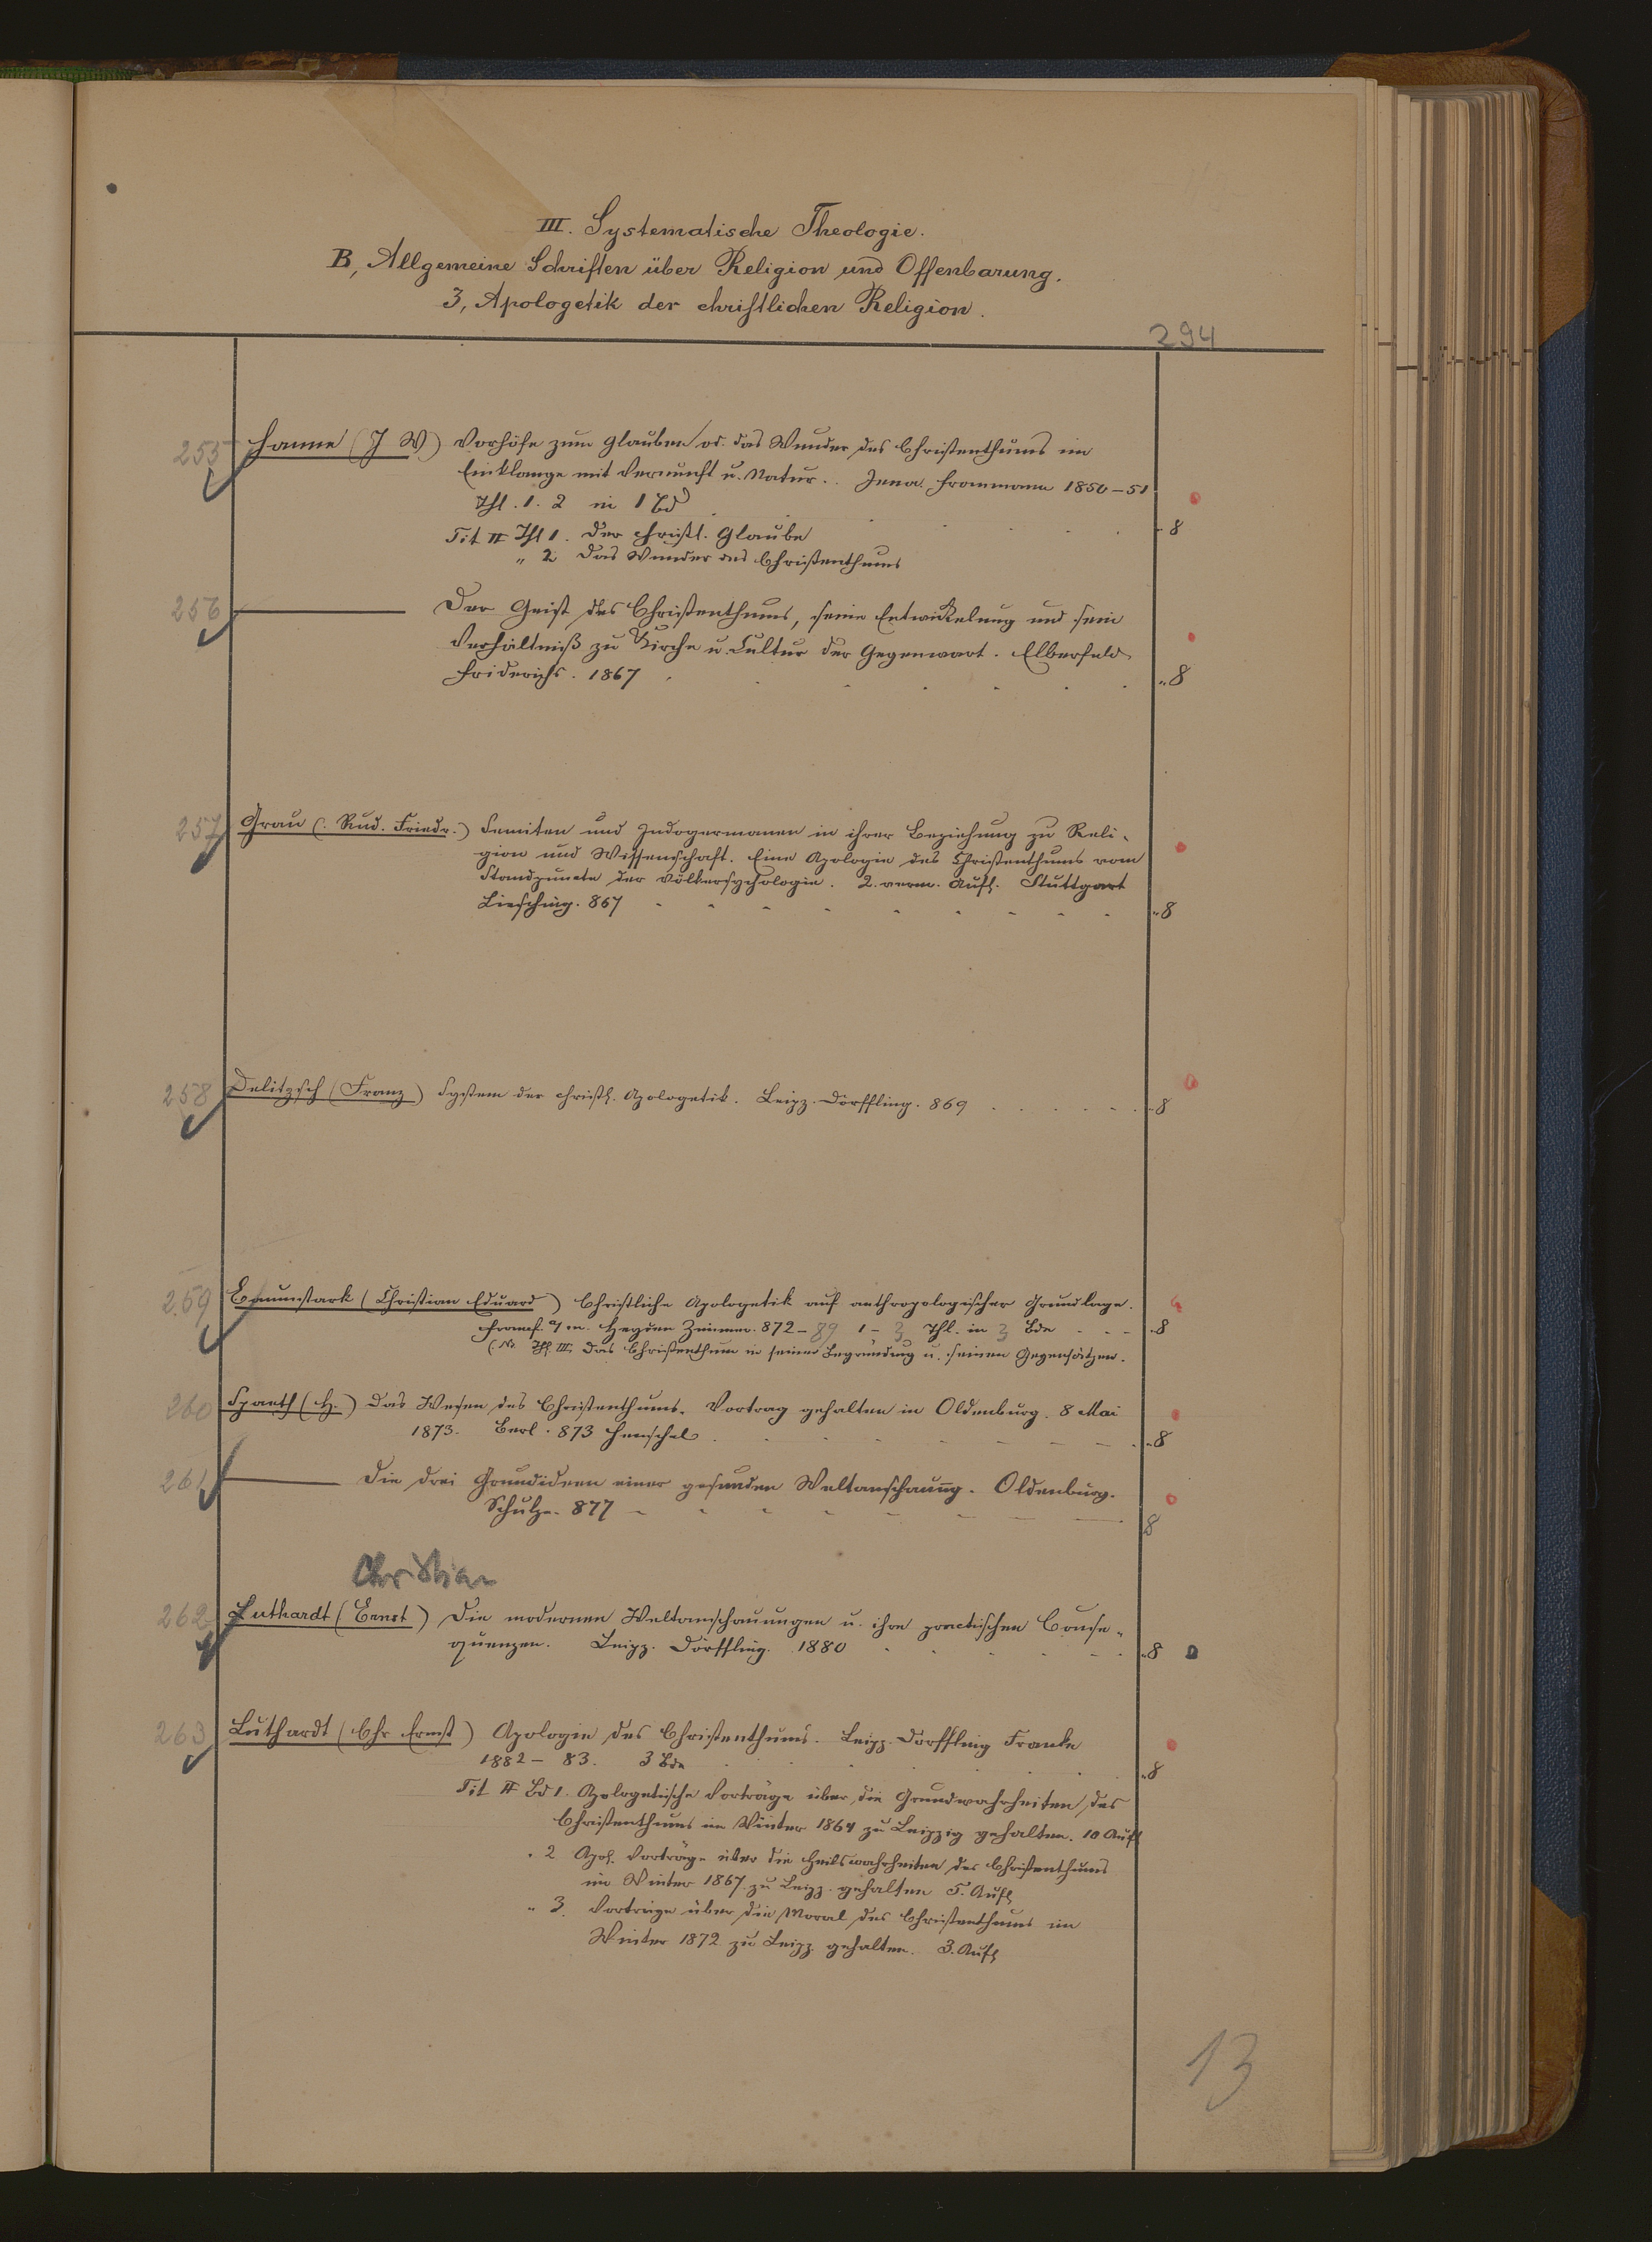 III. Systematische Theologie.
B, Allgemeine Schriften über Religion und Offenbarung.
3, Apologetik der christlichen Religion.
294
255 Hanne (J W) Vorhöfe zum Glauben od. das Wunder des Christenthums im
Einklange mit Vernunft u. Natur. Jena. Frommann 1850–51
Thl. 1. 2 in 1 Bd
8
Tit II Thl 1. Der christl. Glaube
" 2 Das Wunder des Christenthums
256 Der Geist des Christenthums, seine Entwickelung und sein
Verhältniß zu Kirche u. Cultur der Gegenwart. Elberfeld
Friderichs. 1867 8
257 Grau (Rud. Friedr.) Semiten und Indogermanen in ihrer Beziehung zu Reli-
gion und Wissenschaft. Eine Apologie des Christenthums vom
Standpuncte der Völkerpsychologie. 2. verm. Aufl. Stuttgart
Liesching. 867 8
258 Delitzsch (Franz) System der christl. Apologetik. Leipz. Dörffling. 869 8
259 Baumstark (Christian Eduard) Christliche Apologetik auf anthropologischer Grundlage.
Francf. a/m. Heyder Zimmer. 872–89 1–3 Thl. in 3 Bde 8
Thl. III. Das Christenthum in seiner Begründung u. seinen Gegensätzen.
260 Spaeth (H.) Das Wesen des Christenthums. Vortrag gehalten in Oldenburg. 8 Mai
1873. Berl. 873 Henschel 8
261 Die drei Grundideen einer gesunden Weltanschauung. Oldenburg.
Schulze. 877 8
Christian
262 Luthardt (Ernst) Die modernen Weltanschauungen u. ihre practischen Conse-
quenzen. Leipz. Dörffling. 1880 8
263 Luthardt (Chr Ernst) Apologie des Christenthums. Leipz. Dörffling Franke
1882–83. 3 Bde 8
Tit II Bd 1. Apologetische Vorträge über die Grundwahrheiten des
Christenthums im Winter 1864 zu Leipzig gehalten. 10 Aufl
" 2 Apol. Vorträge über die Heilswahrheiten des Christenthums
im Winter 1867. zu Leipz. gehalten 5. Aufl
" 3. Vorträge über die Moral des Christenthums im
Winter 1872 zu Leipz. gehalten. 3. Aufl
13